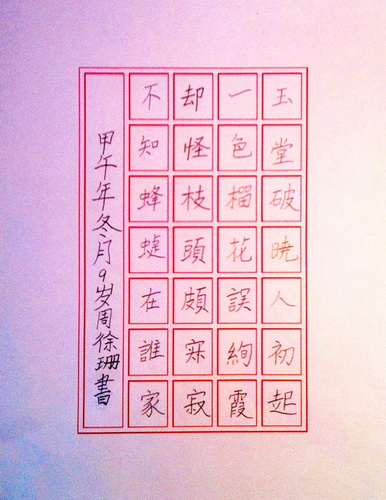 玉堂破曉人初起
一色榴花誤絢霞
却怪枝頭頗寂寂
不知蜂蜨在誰家
甲午年冬月9岁周徐珊書